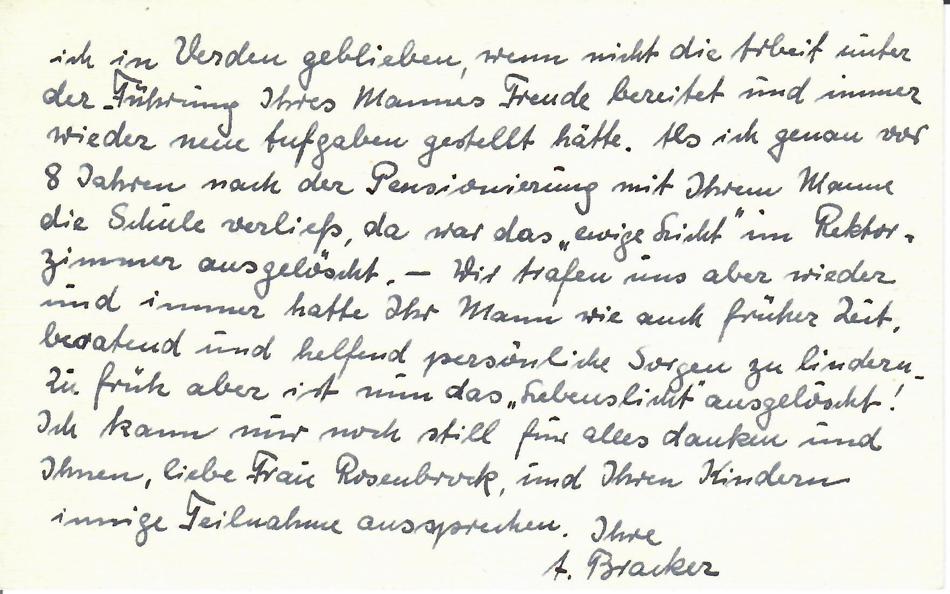 ich in Verden geblieben, wenn nicht die Arbeit unter
der Führung Ihres Mannes Freude bereitet und immer
wieder neue Aufgaben gestellt hätte. Als ich genau vor
8 Jahren nach der Pensionierung mit Ihrem Manne
die Schule verließ, da war das „ewige Licht" im Rektor-
zimmer ausgelöscht. — Wir trafen uns aber wieder
und immer hatte Ihr Mann wie auch früher Zeit,
beratend und helfend persönliche Sorgen zu lindern.
Zu früh aber ist nun das „Lebenslicht" ausgelöscht!
Ich kann nur noch still für alles danken und
Ihnen, liebe Frau Rosenbrock, und Ihren Kindern
innige Teilnahme aussprechen. Ihre
A. Bracker